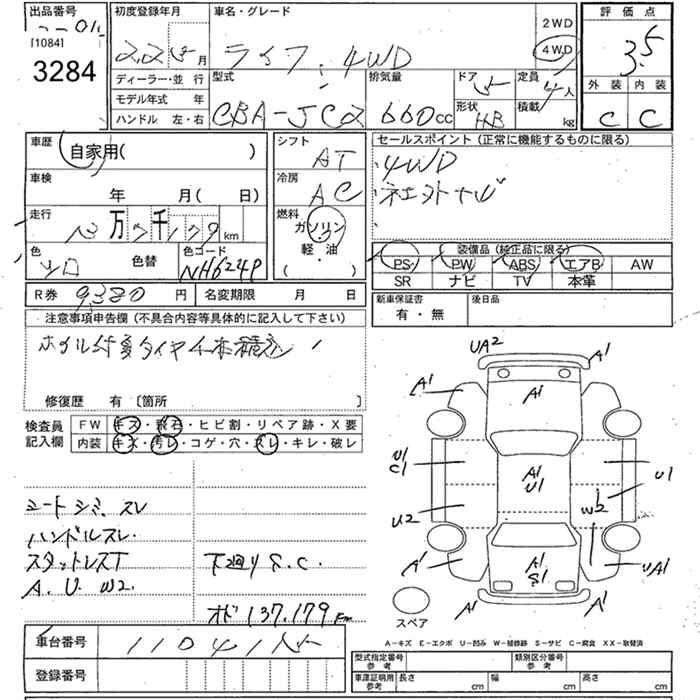 出品番号
[1084]
3284
初度登録年月
22 5 月
ディーラー・並 行
モデル年式 年
ハンドル 左・右
車名・グレード
ライフ 4WD
2WD
4WD
型式
CBA-JC2
排気量
660cc
ドア 5
形状 HB
定員 4人
積載 kg
評価点
3.5
外装 内装
C C
車歴 自家用( )
車検 年 月( 日)
走行 13万7千179km
色 シロ 色替
色コード
NH624P
シフト
AT
冷房
AC
燃料
ガソリン
軽・油
( )
セールスポイント(正常に機能するものに限る)
4WD
装備品(純正品に限る)
PS PW ABS エアB AW
SR ナビ TV 本革
R券 9,380 円 名変期限 月 日
新車保証書
有・無
後日品
注意事項申告欄(不具合内容等具体的に記入して下さい)
修復歴 有〔箇所 〕
検査員
記入欄
FW キズ・飛石・ヒビ割・リペア跡・X要
内装 キズ・汚レ・コゲ・穴・スレ・キレ・破レ
シートシミ、スレ
ハンドルスレ
スタットレスT
A. U. W2.
下廻りS.C.
オド137.179Km
UA2
A1
A1
A1
A1
U1
C1
A1
U1
U1
U2
W2
A1
A1
S1
UA1
A1
A1
スペア
A−キズ E−エクボ U−凹み W−補修跡 S−サビ C−腐食 XX−取替済
車台番号
登録番号
型式指定番号
参考
類別区分番号
参考
車庫証明用
参考
長さ cm 幅 cm 高さ cm